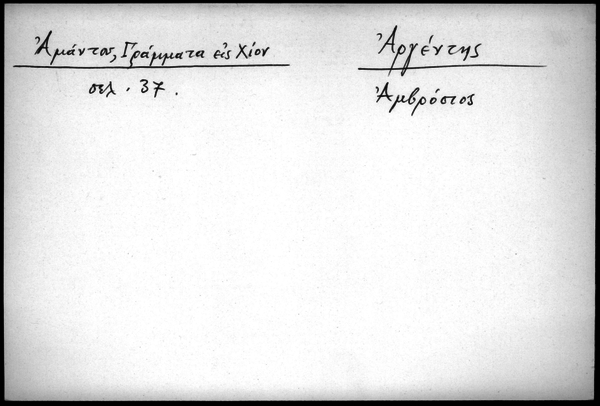 Ἀμάντου, Γράμματα εἰς Χίον
σελ. 37.
Ἀργέντης
Ἀμβρόσιος